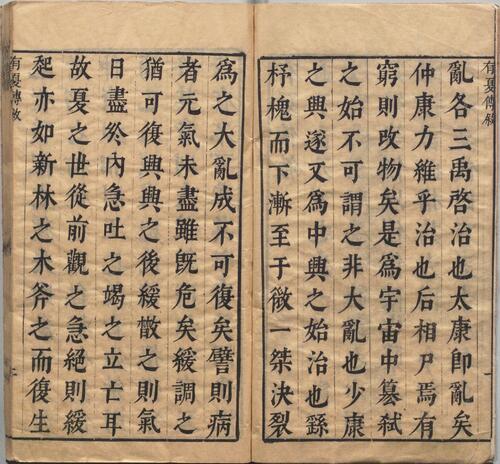 有夏傳叙
亂各三禹啓治也太康卽亂矣
仲康力維乎治也后相尸焉有
窮則攺物矣是爲宇宙中簒弑
之始不可謂之非大亂也少康
之興遂又爲中興之始治也繇
杼槐而下漸至于微一桀決裂
爲之大亂成不可復矣譬則病
者元氣未盡雖旣危矣緩調之
猶可復興興之後緩散之則氣
日盡於內急吐之竭之立亡耳
故夏之世從前觀之急絕則緩
起亦如新林之木斧之而復生
有夏傳叙
二